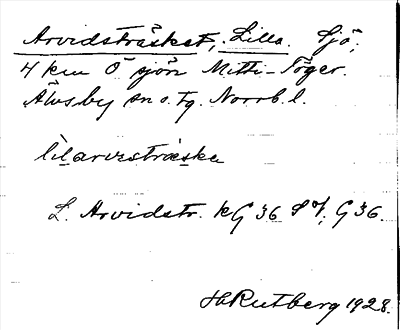 Arvidsträsket, Lilla. Sjö,
4 km Ö sjön Mitti-Töger.
Älvsby sn o. tg. Norrb. l.
lìlarvesträske
L. Arvidstr. kG 36 SV, G 36.
H Rutberg 1928.